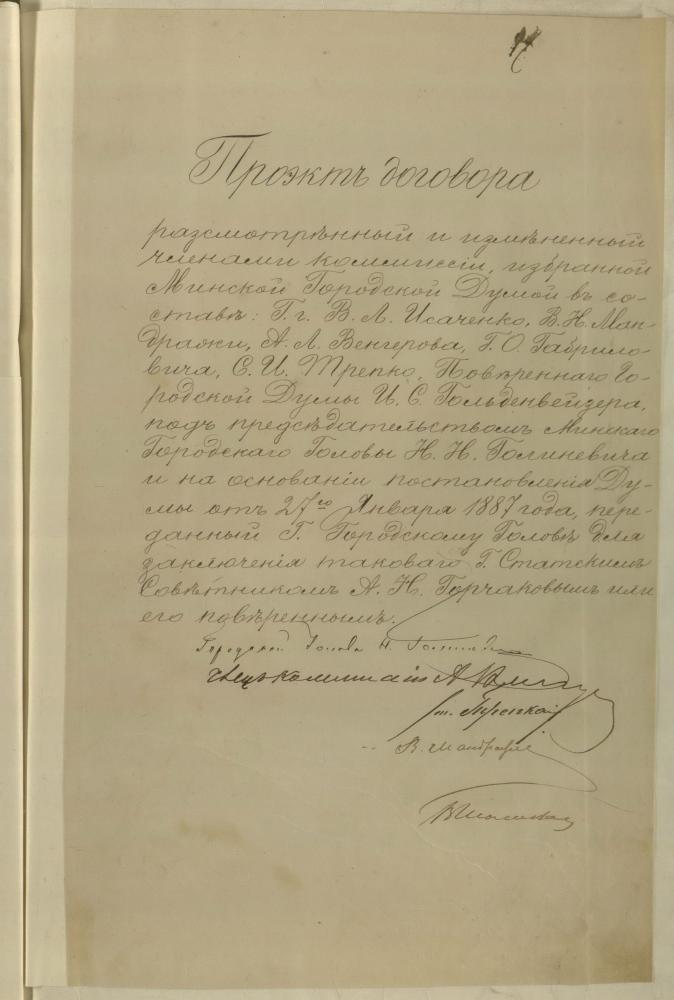 Проэктъ договора
разсмотрѣнный и измѣненный
членами коммиссіи, избранной
Минской Городской Думой въ со-
ставѣ: Г.г. В. Л. Исаченко, В. Н. Ман-
дражи, А. Л. Венгерова, Г. О. Габрило-
вича, С. И. Трепко, Повѣреннаго Го-
родской Думы И. С. Гольденвейзера,
подъ предсѣдательствомъ Минскаго
Городскаго Головы Н. Н. Голиневича
и на основаніи постановленія Ду-
мы отъ 27го Января 1887 года, пере-
данный Г. Городскому Головѣ для
заключенія таковаго Г. Статскимъ
Совѣтникомъ А. Н. Горчаковымъ или
его повѣреннымъ.
Городской Голова Н. Голиневичъ
коммиссіи А.
Трепко
В. Мандражи